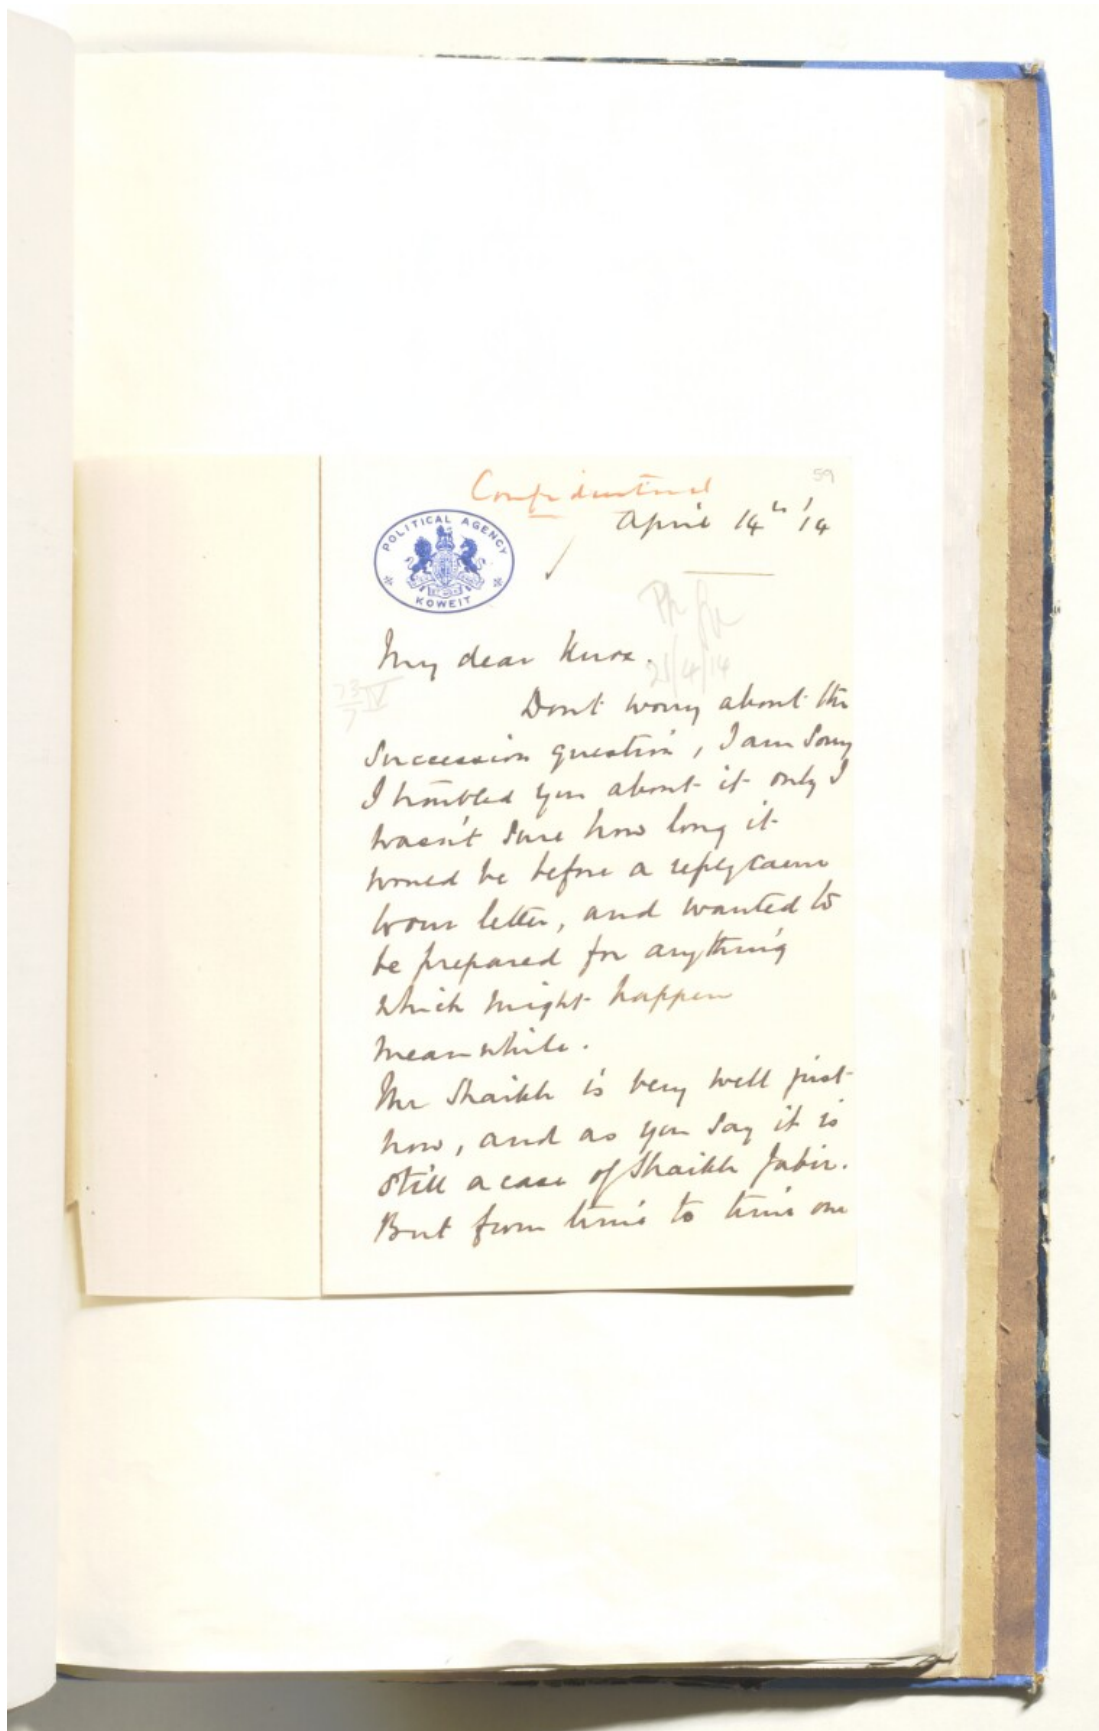 59
Confidential
April 14th '14
POLITICAL AGENCY
KOWEIT
My dear Knox.
21/4/14
Dont worry about the
succession question, I am sorry
I troubled you about it only I
wasn't sure how long it
would be before a reply came
to our letter, and wanted to
be prepared for anything
which might happen
meanwhile.
The Shaikh is very well just
now, and as you say it is
still a case of Shaikh Jabir.
But from time to time one